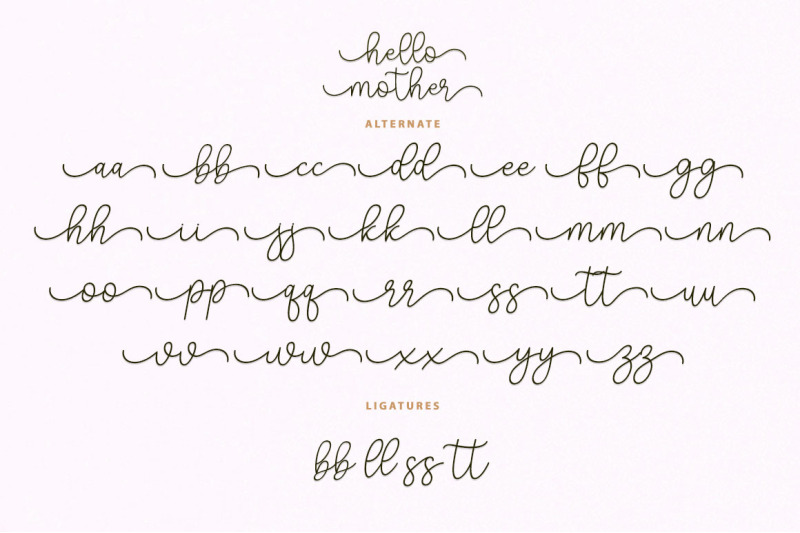 hello
mother
ALTERNATE
aa bb cc dd ee ff gg
hh ii jj kk ll mm nn
oo pp qq rr ss tt uu
vv ww xx yy zz
LIGATURES
bb ll ss tt